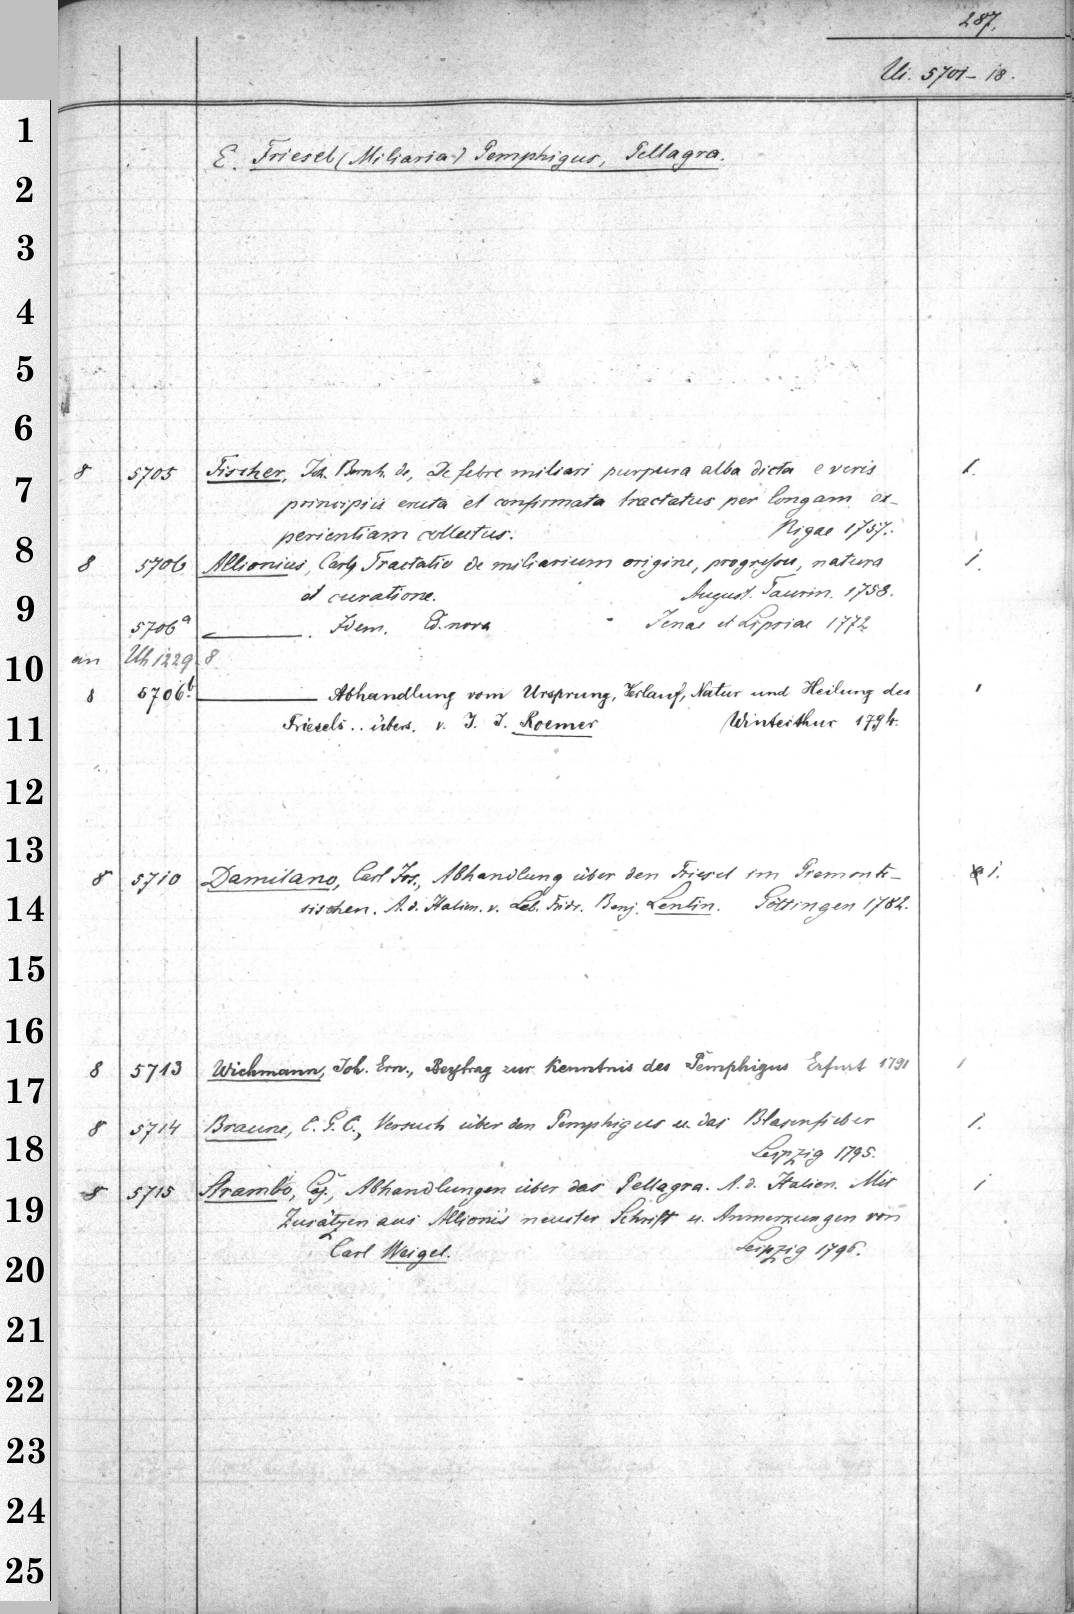 287.
Ui. 5701-18.
E. Friesel (Miliaria) Pemphigus, Pellagra.
8 5705 Fischer, Joh. Bernh. de, De febre miliari purpura alba dicta e veris 1.
principiis eruta et confirmata tractatus per longam ex-
perientiam collectus. Rigae 1757.
8 5706 Allionius, Carl, Tractatio de miliarium origine, progressu, natura 1.
et curatione. August. Taurin. 1758.
5706a ———. Idem. Ed. nova Jenae et Lipsiae 1772
an Uh 1229 8
8 5706b ——— Abhandlung vom Ursprung, Verlauf, Natur und Heilung des 1
Friesels .. übers. v. J. J. Roemer Winterthur 1794.
8 5710 Damilano, Carl Jos., Abhandlung über den Friesel im Piemonte- 1.
sischen. A. d. Italien. v. Leb. Fridr. Benj. Lentin. Göttingen 1782.
8 5713 Wichmann, Joh. Ern., Beytrag zur Kenntnis des Pemphigus Erfurt 1791 1
8 5714 Braune, C. G. C., Versuch über den Pemphigus u. das Blasenfieber 1.
Leipzig 1795.
8 5715 Strambo, Caj., Abhandlungen über das Pellagra. A. d. Italien. Mit 1
Zusätzen aus Allioni's neuster Schrift u. Anmerkungen von
Carl Weigel. Leipzig 1796.
1
2
3
4
5
6
7
8
9
10
11
12
13
14
15
16
17
18
19
20
21
22
23
24
25